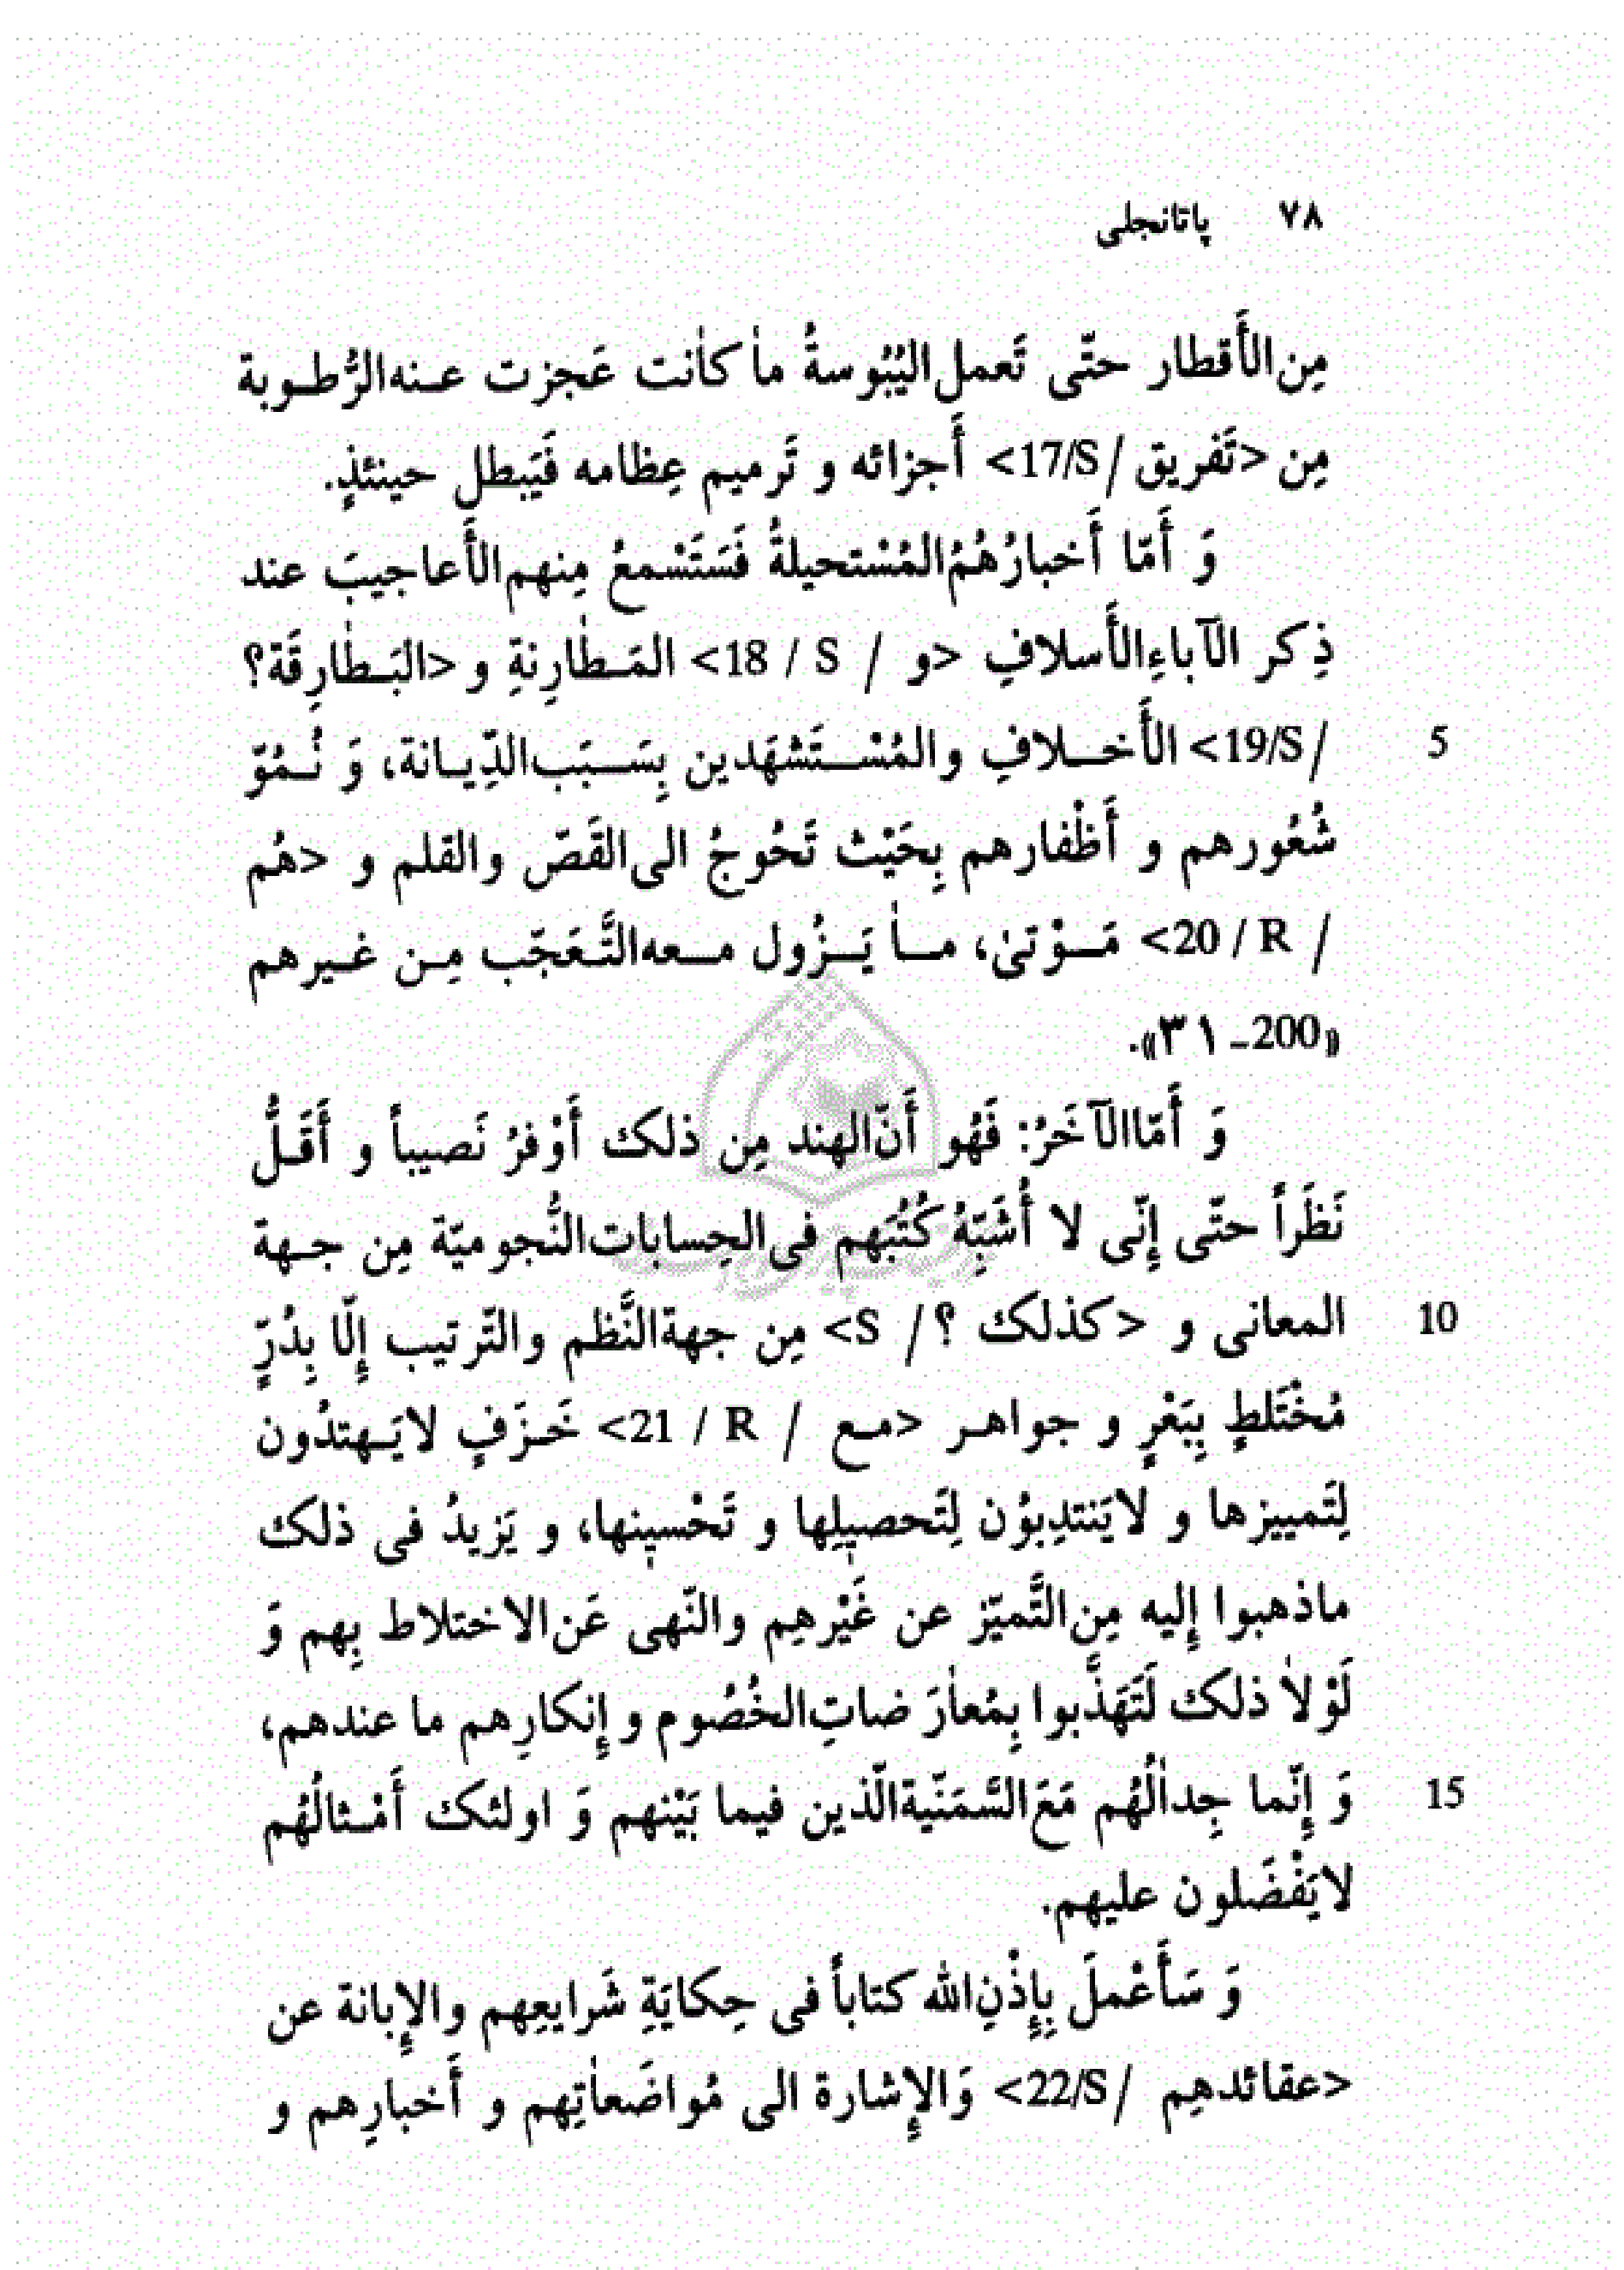 ٧٨ پاتانجلی
مِن‌الأَقطار حتّى تَعمل‌اليُبُوسةُ ماٰ كاٰنت عَجزت عـنه‌الرُّطـوبة
مِن <تَفريق /17/S> أَجزائه و تَرميم عِظامه فَيَبطل حينئذٍ.
وَ أَمّا أَخبارُهُمُ‌المُسْتحيلةُ فَسَتَسْمعُ مِنهم‌الأَعاجيبَ عند
ذِكر الآباءِ‌الأَسلافِ <و / 18 / S> المَـطٰارِنةِ و <البَـطٰارِقَة؟
5 /19/S> الأَخـــلافِ والمُسْـــتَشْهَدين بِسَـــبَب‌الدِّيـانة، وَ نُـمُوّ
شُعُورهم و أَظْفارهم بِحَيْث تَحُوجُ الى‌القَصّ والقلم و <هُم
/ 20 / R> مَـــوْتىٰ، مـــاٰ يَـــزُول مـــعه‌التَّعَجّب مِـن غـيرهم
«200ـ٣١».
وَ أَمّاالآخَرُ: فَهُو أَنّ‌الهند مِن ذلك أَوْفرُ نَصيباً و أَقَـلُّ
نَظَراً حتّى إِنّى لا أُشَبِّهُ كُتُبَهم فى‌الحِسابات‌النُّجوميّة مِن جـهة
10 المعانى و <كذلك ؟/ S> مِن جهةالنَّظم والتّرتيب إِلّا بِدُرٍّ
مُخْتَلطٍ بِبَعْرٍ و جواهـر <مـع / 21 / R> خَـزَفٍ لايَـهتدُون
لِتَمييزها و لايَنتدِبوُن لِتَحصيلِها و تَحْسينها، و يَزيدُ فى ذلك
ماذهبوا إِليه مِن‌التَّميّز عن غَيْرهِم والنّهى عَن‌الاختلاط بِهم وَ
لَوْلاٰ ذلك لَتَهَذَّبوا بِمُعاٰرَ ضاتِ‌الخُصُوم و إِنكارِهم ما عندهم،
15 وَ إِنّما جِداٰلُهُم مَعَ‌السَّمَنّيةالّذين فيما بَيْنهم وَ اولئك أَمْـثالُهُم
لايَفْضَلون عليهم.
وَ سَأَعْملَ بِإِذْنِ‌الله كتاباً فى حِكايَةِ شَرايعِهم والإِبانة عن
<عقائدهِم /22/S> وَالإِشارة الى مُواضَعاٰتِهم و أَخبارِهم و